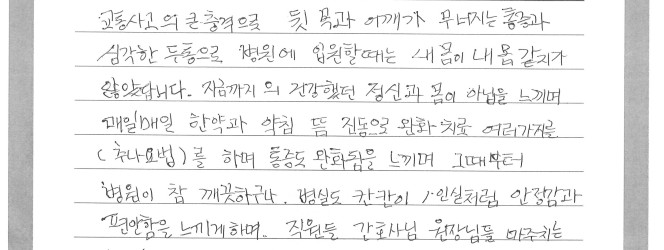 교통사고의 큰 충격으로 뒷 목과 어깨가 무너지는 통증과
심각한 두통으로 병원에 입원할때는 내 몸이 내 몸 같지가
않았답니다. 지금까지의 건강했던 정신과 몸이 아님을 느끼며
매일매일 한약과 약침 뜸 진동으로 완화 치료 여러가지를
(추나요법)를 하며 통증도 완화됨을 느끼며 그때부터
병원이 참 깨끗하구나. 병실도 칸칸이 1인실처럼 안정감과
편안함을 느끼게하며.. 직원들 간호사님 원장님들 마주치는